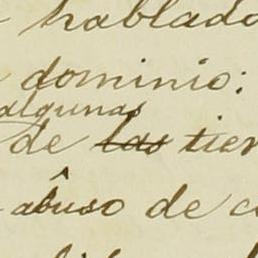 hablado
dominio:
algunas
de las tier
abuso de c